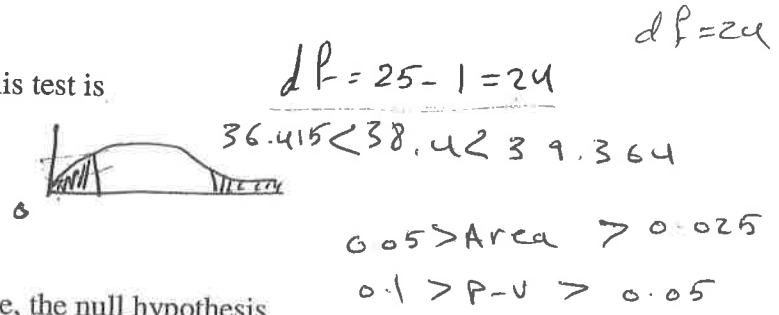 df=24
is test is
df=25-1=24
36.415<38.4<39.364
0
0.05>Area>0.025
0.1>P-v>0.05
e, the null hypothesis